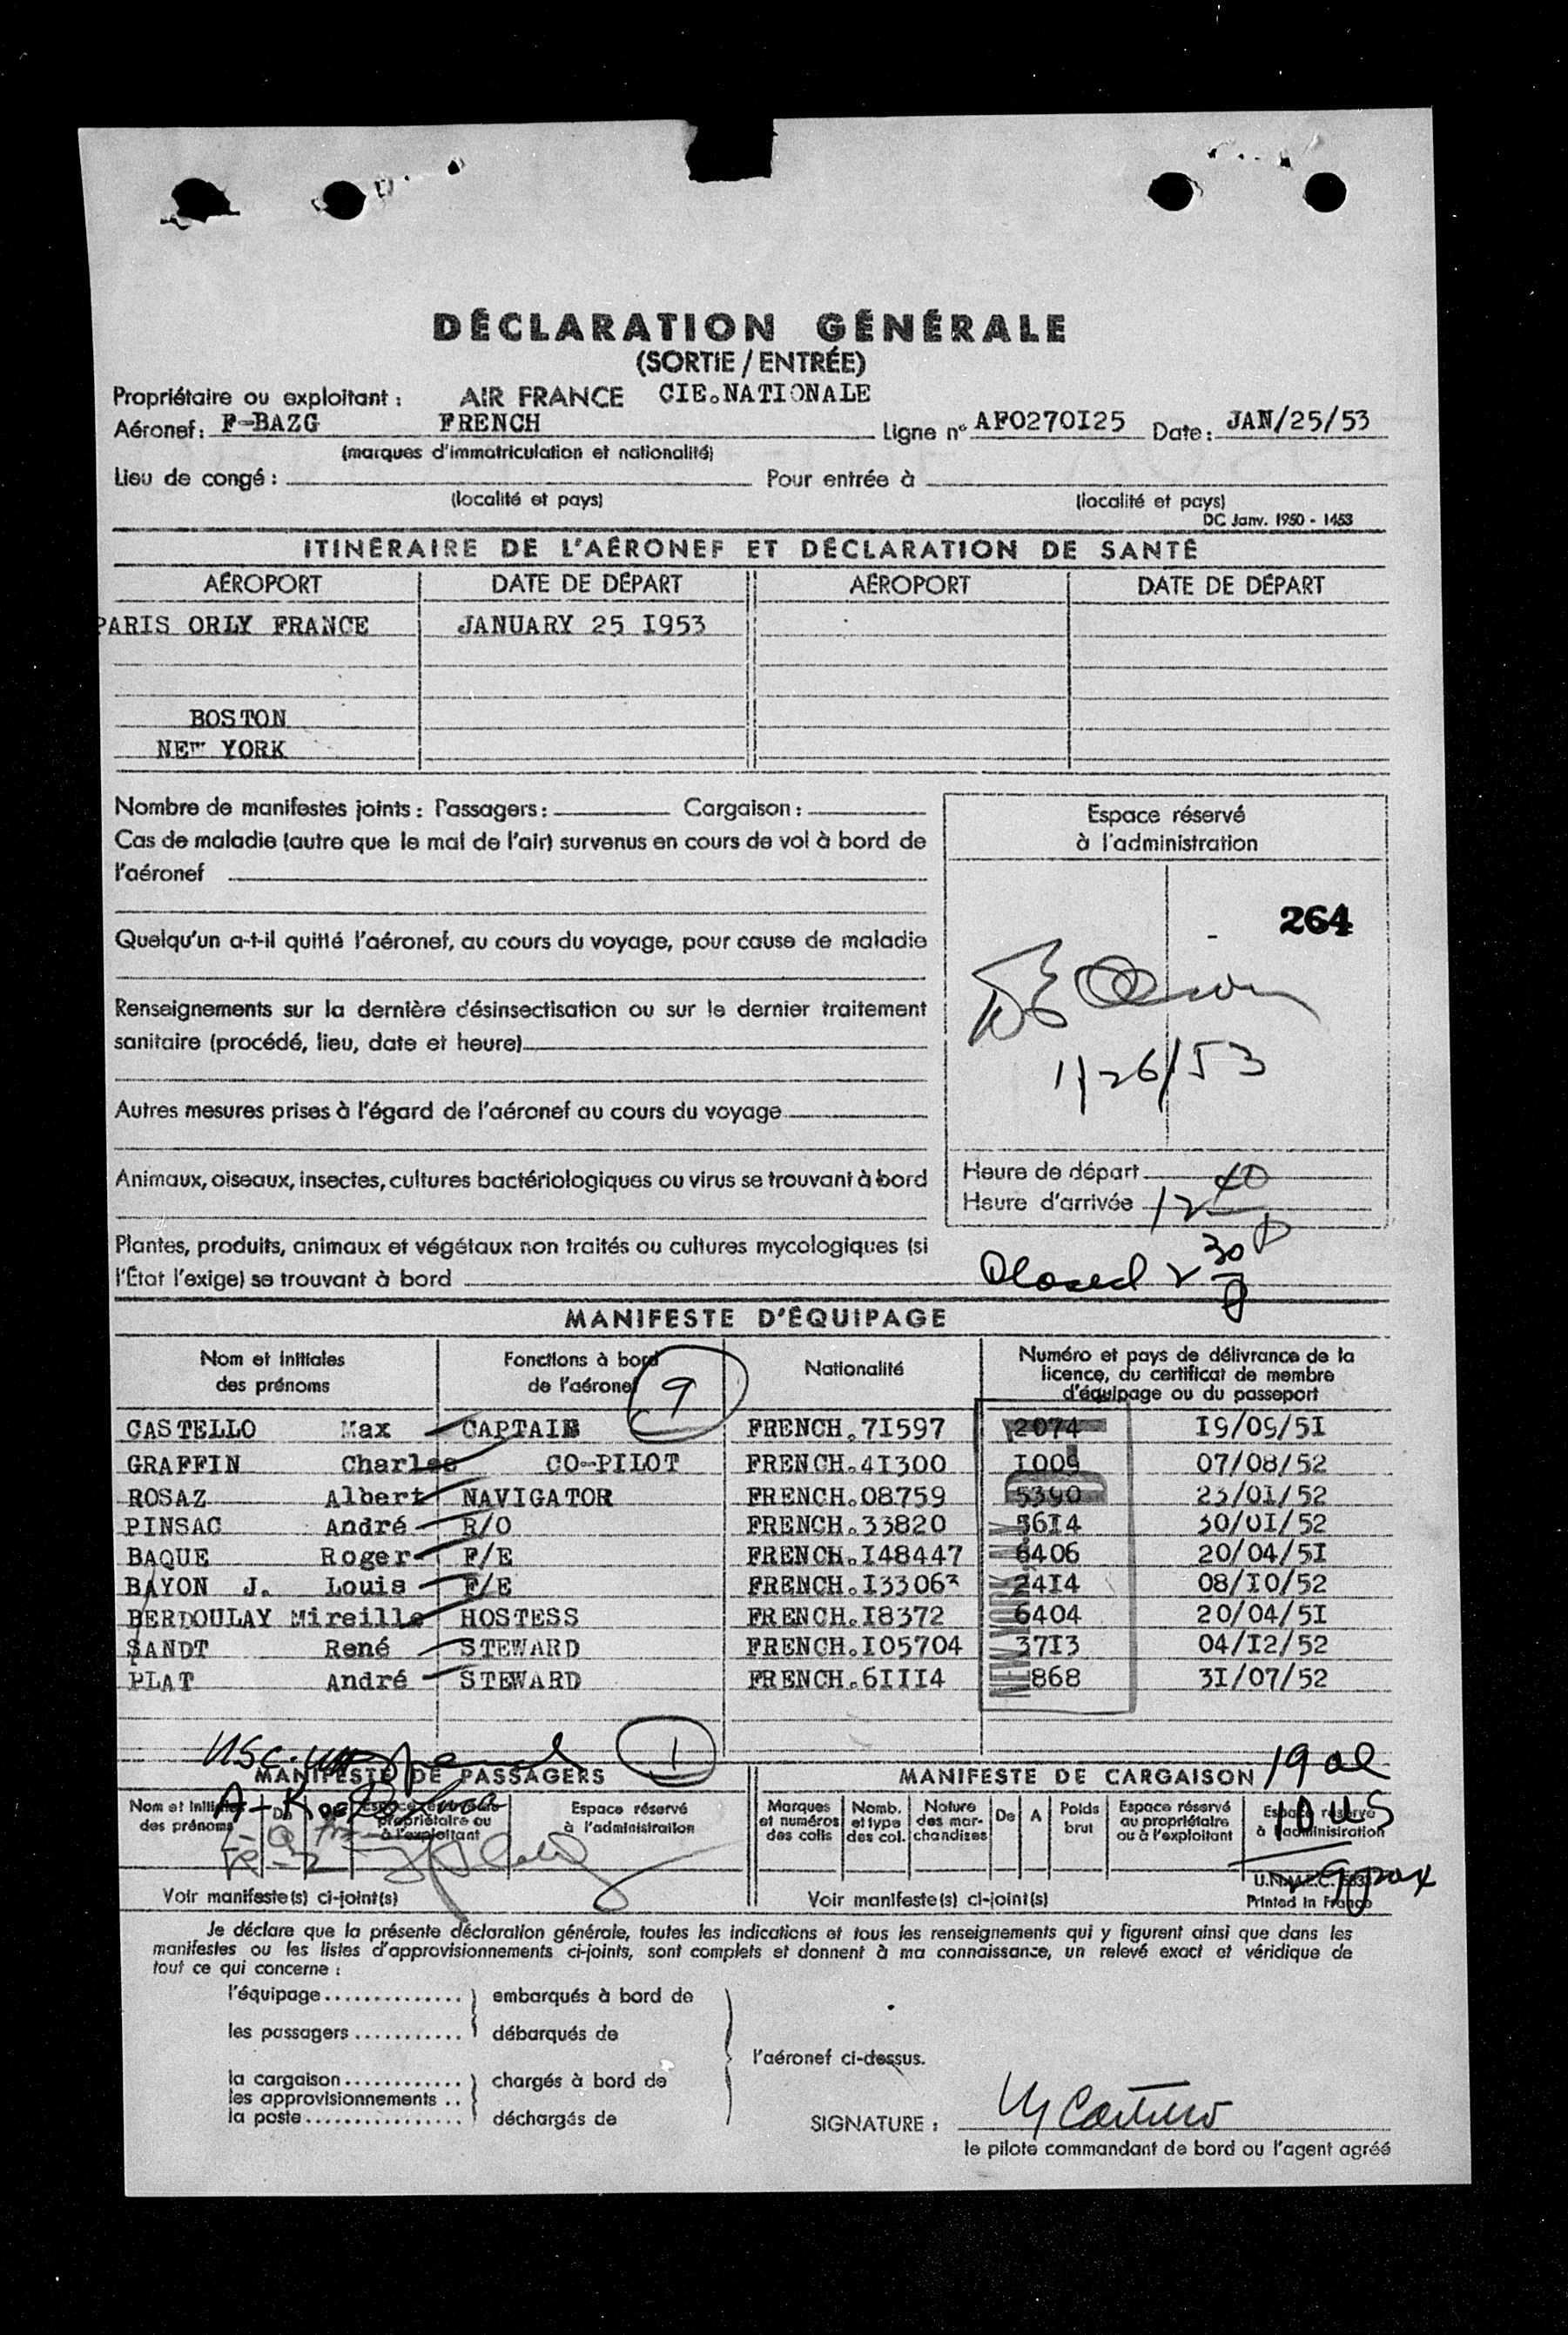 DÉCLARATION GÉNÉRALE
(SORTIE / ENTRÉE)
Propriétaire ou exploitant : AIR FRANCE CIE.NATIONALE
Aéronef : F-BAZG FRENCH Ligne n° AFO270I25 Date : JAN/25/53
(marques d'immatriculation et nationalité)
Lieu de congé : Pour entrée à
(localité et pays) (localité et pays)
DC Janv. 1950 - 1453
ITINÉRAIRE DE L'AÉRONEF ET DÉCLARATION DE SANTÉ
AÉROPORT DATE DE DÉPART AÉROPORT DATE DE DÉPART
PARIS ORLY FRANCE JANUARY 25 I953
BOSTON
NEW YORK
Nombre de manifestes joints : Passagers : Cargaison :
Cas de maladie (autre que le mal de l'air) survenus en cours de vol à bord de
l'aéronef
Quelqu'un a-t-il quitté l'aéronef, au cours du voyage, pour cause de maladie
Renseignements sur la dernière désinsectisation ou sur le dernier traitement
sanitaire (procédé, lieu, date et heure)
Autres mesures prises à l'égard de l'aéronef au cours du voyage
Animaux, oiseaux, insectes, cultures bactériologiques ou virus se trouvant à bord
Plantes, produits, animaux et végétaux non traités ou cultures mycologiques (si
l'État l'exige) se trouvant à bord
Espace réservé
à l'administration
264
1/26/53
Heure de départ
Heure d'arrivée 12 40 P
Closed 2 30 P
MANIFESTE D'ÉQUIPAGE
Nom et initiales des prénoms Fonctions à bord de l'aéronef 9 Nationalité Numéro et pays de délivrance de la licence, du certificat de membre d'équipage ou du passeport
CASTELLO Max CAPTAIN FRENCH.7I597 2074 I9/09/5I
GRAFFIN Charles CO-PILOT FRENCH.4I300 I009 07/08/52
ROSAZ Albert NAVIGATOR FRENCH.08759 5390 23/0I/52
PINSAC André R/O FRENCH.33820 56I4 30/0I/52
BAQUE Roger F/E FRENCH.I48447 6406 20/04/5I
BAYON J. Louis F/E FRENCH.I33063 24I4 08/I0/52
BERDOULAY Mireille HOSTESS FRENCH.I8372 6404 20/04/5I
SANDT René STEWARD FRENCH.I05704 37I3 04/I2/52
PLAT André STEWARD FRENCH.6III4 868 3I/07/52
NEW YORK, N.Y.
USC 1
MANIFESTE DE PASSAGERS
Nom et initiales des prénoms De Espace réservé au propriétaire ou à l'exploitant Espace réservé à l'administration
Voir manifeste(s) ci-joint(s)
MANIFESTE DE CARGAISON
Marques et numéros des colis Nomb. et type des col. Nature des mar- chandises De A Poids brut Espace réservé au propriétaire ou à l'exploitant Espace réservé à l'administration
19 al
10 US
29 pax
Voir manifeste(s) ci-joint(s)
Printed in France
Je déclare que la présente déclaration générale, toutes les indications et tous les renseignements qui y figurent ainsi que dans les
manifestes ou les listes d'approvisionnements ci-joints, sont complets et donnent à ma connaissance, un relevé exact et véridique de
tout ce qui concerne :
l'équipage .............. embarqués à bord de
les passagers ........... débarqués de
l'aéronef ci-dessus.
la cargaison ............ chargés à bord de
les approvisionnements ..
la poste ................ déchargés de
SIGNATURE : M Castello
le pilote commandant de bord ou l'agent agréé